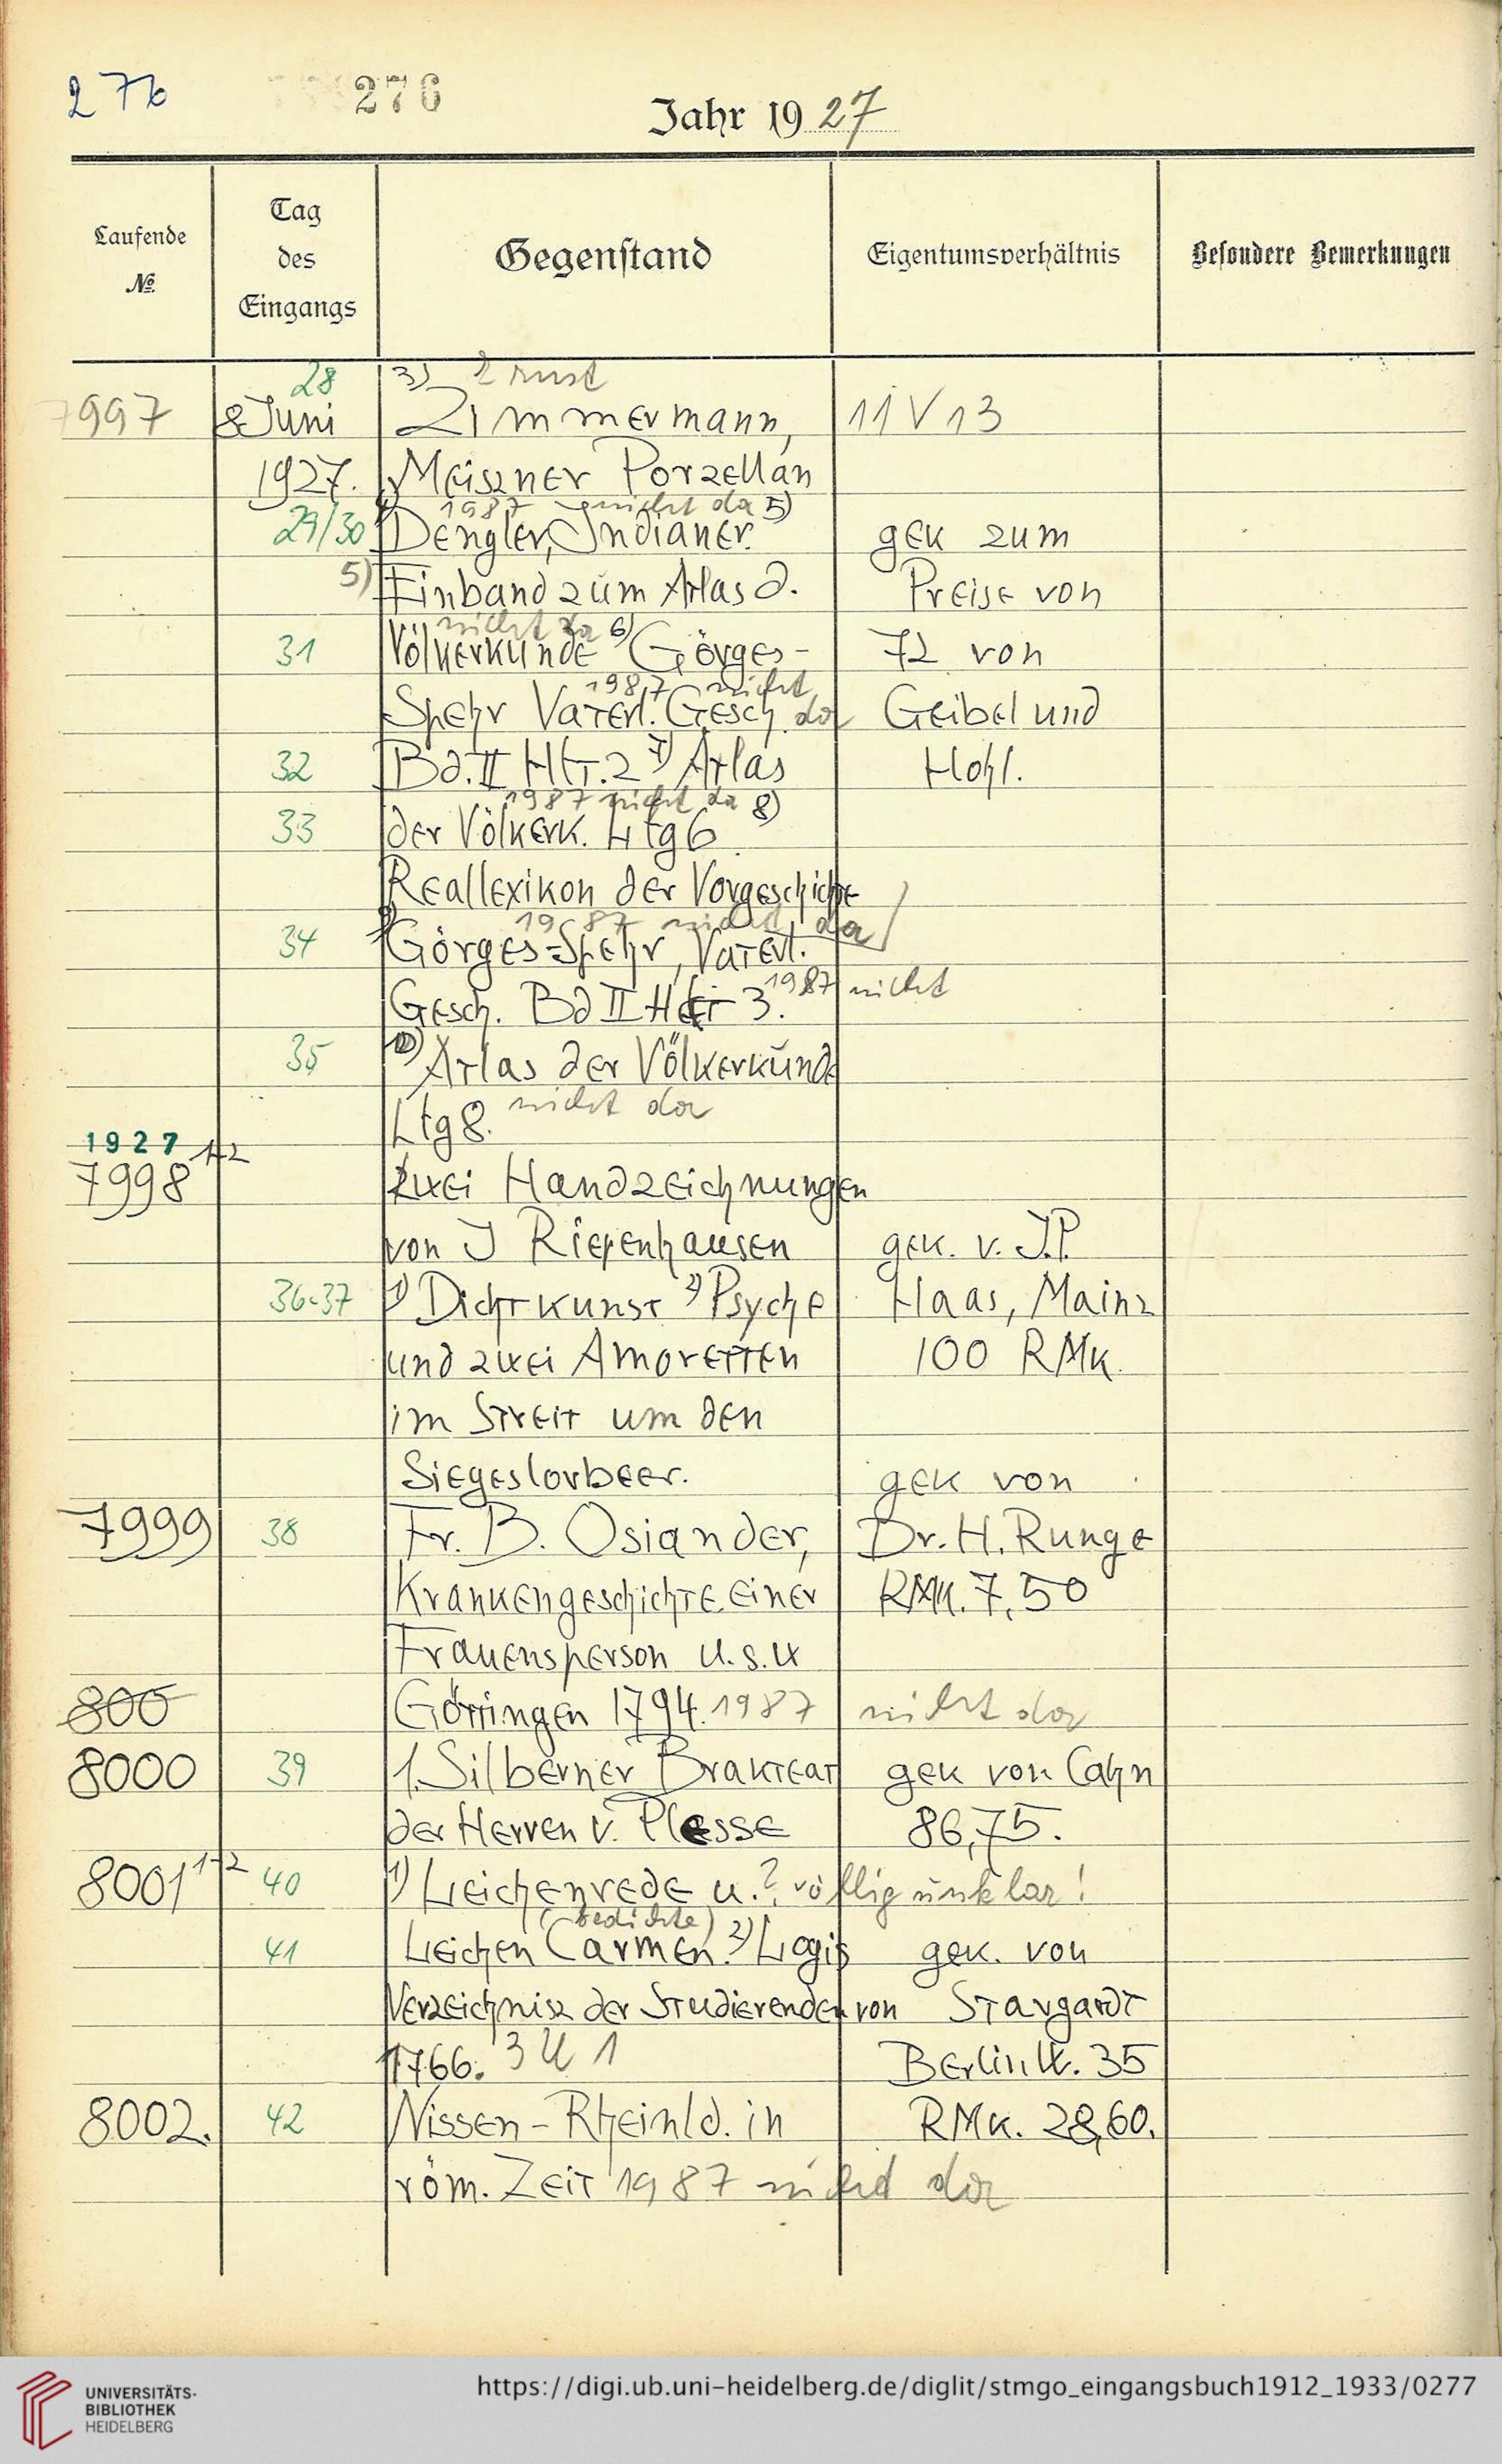 276 276
Jahr 1927
Laufende № Tag des Eingangs Gegenstand Eigentumsverhältnis Besondere Bemerkungen
28 3)
7997 8 Juni Zimmermann, 11 V 13
1927. Meiszner Porzellan
1987 nicht da 5)
29/30 Dengler, Indianer. gek zum
5) Einband zum Atlas d. Preise von
nicht da 6)
31 Völkerkunde Görges- 72 von
1987 nicht
Spehr Vaterl. Gesch. da Geibel und
32 Bd. II Hft. 2 7) Atlas Hohl.
1987 nicht da 8)
33 der Völkerk. Lfg 6
Reallexikon der Vorgeschichte
1987 nicht da
34 9) Görges-Spehr, Vaterl.
Gesch. Bd II Hft 3. 1987 nicht
35 10) Atlas der Völkerkunde
Lfg 8. nicht da
1927
7998 1+2 Zwei Handzeichnungen
von J Riepenhausen gek. v. J.P.
36-37 1) Dichtkunst 2) Psyche Haas, Mainz
und zwei Amoretten 100 RMk.
im Streit um den
Siegeslorbeer. gek von
7999 38 Fr. B. Osiander, Dr. H. Runge
Krankengeschichte einer RMk. 7,50
Frauensperson u.s.w
800 Göttingen 1794. 1987 nicht da
8000 39 1. Silberner Brakteat gek von Cahn
der Herren v. Plesse 86,75.
8001 1+2 40 1) Leichenrede u.? völlig unklar!
(Gedichte)
41 Leichen Carmen. 2) Logis gek. von
Verzeichnisz der Studierenden von Stargardt
1766. 3 U 1 Berlin W. 35
8002. 42 Nissen-Rheinld. in RMk. 28,60.
röm. Zeit 1987 nicht da
UNIVERSITÄTS-
BIBLIOTHEK
HEIDELBERG
https://digi.ub.uni-heidelberg.de/diglit/stmgo_eingangsbuch1912_1933/0277